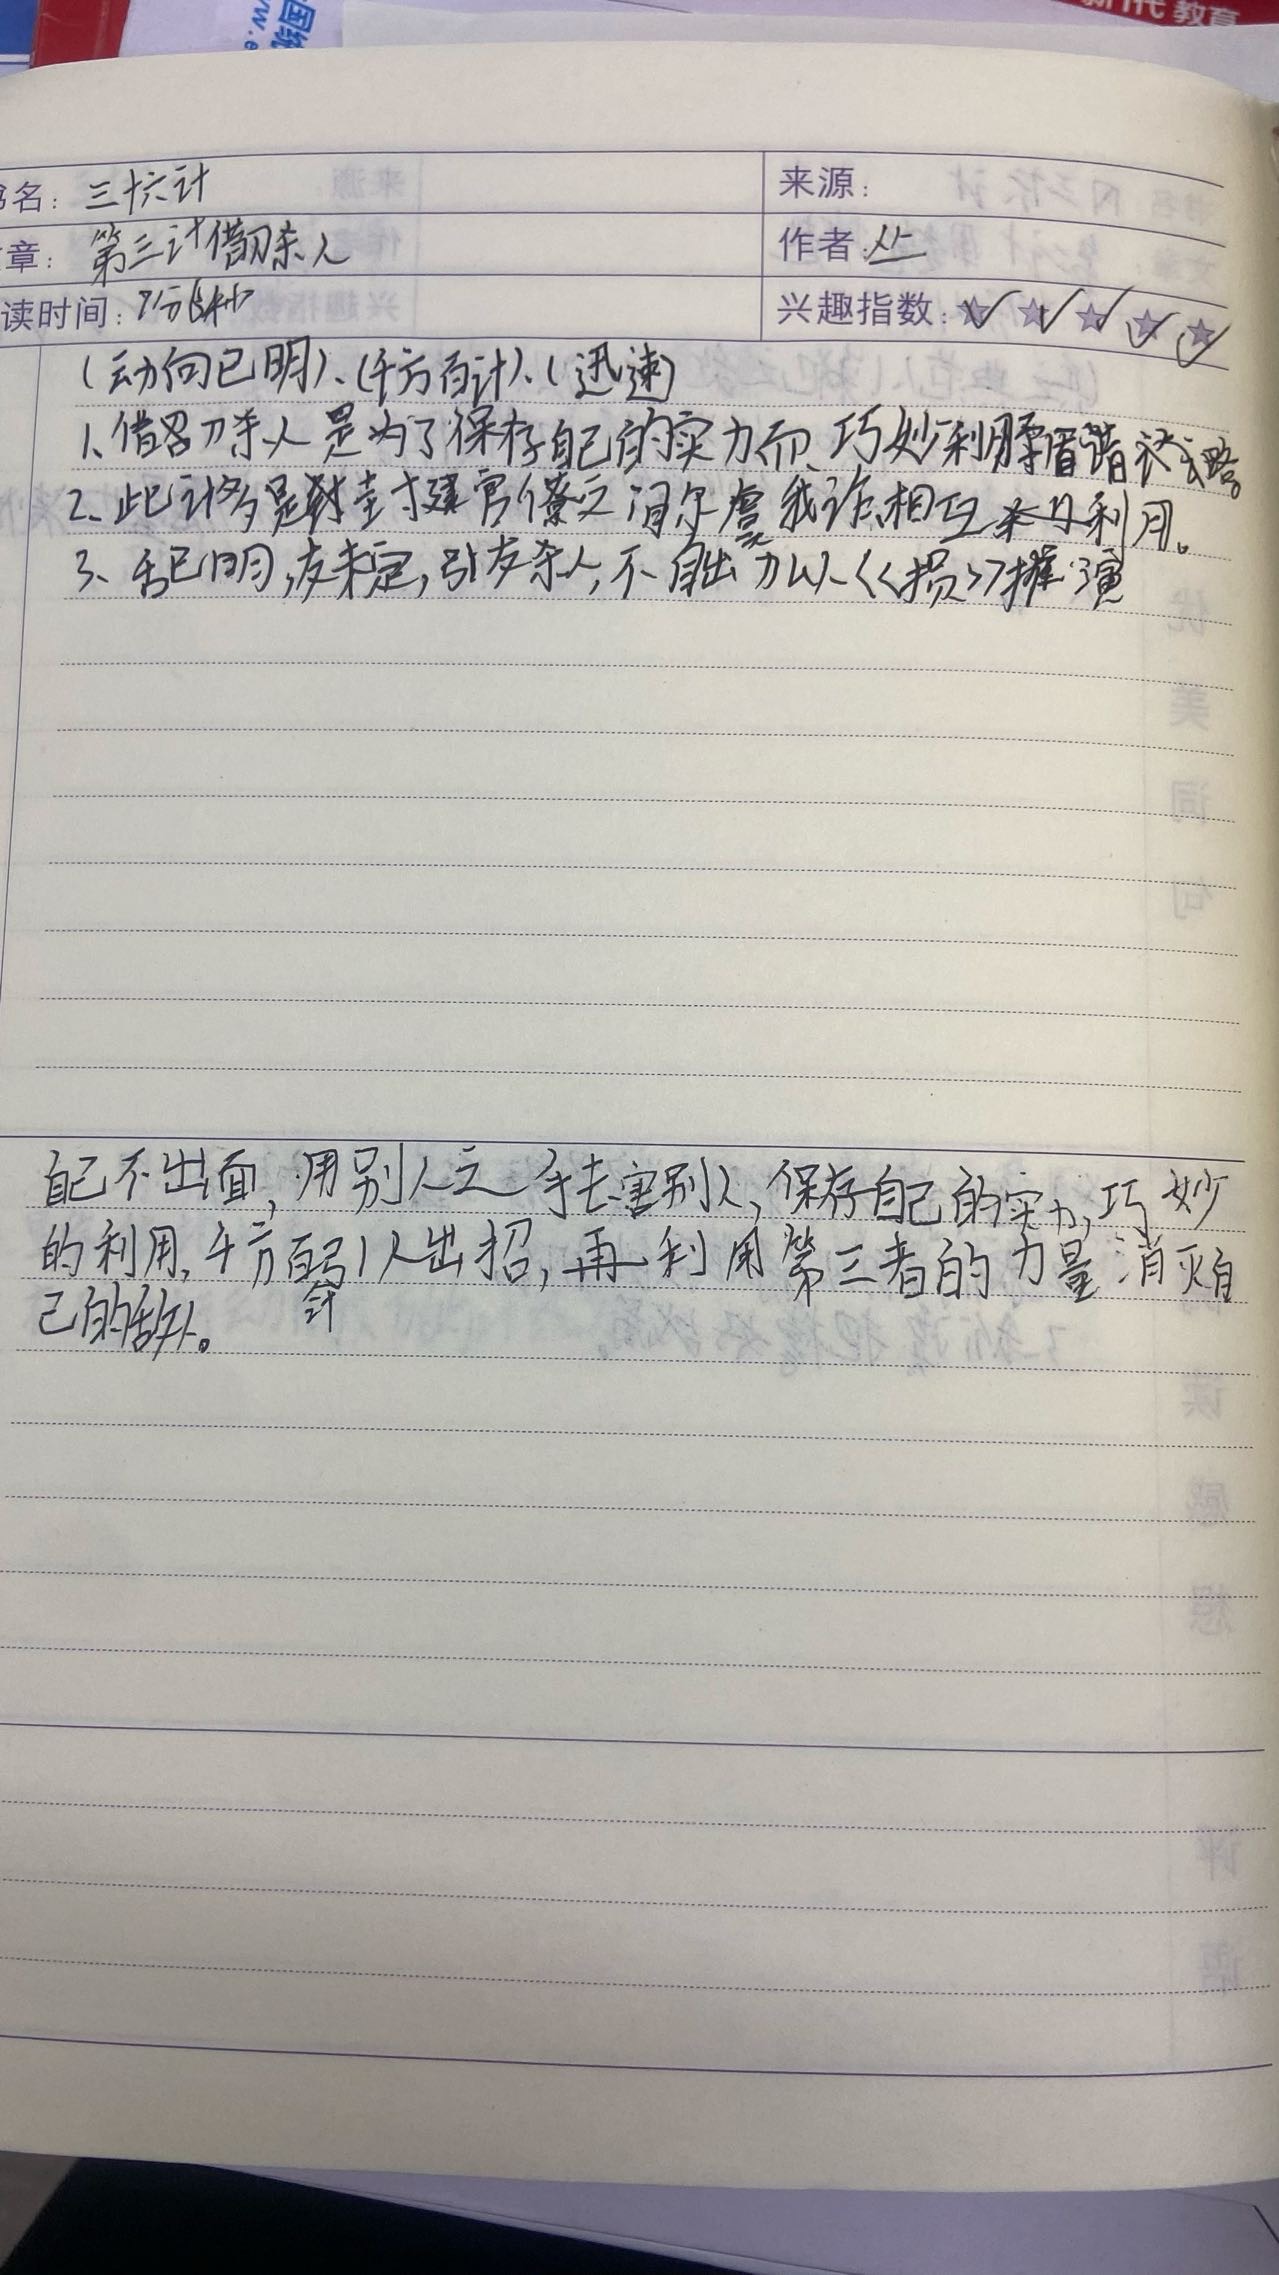 新时代 教育
书名：三十六计
来源：
章：第三计借刀杀人
作者：
读时间：
兴趣指数：☆☆☆☆☆
（动向已明）、（千方百计）、（迅速）
1、借刀杀人是为了保存自己的实力而、巧妙利矛盾谋略。
2、此计多是封建官僚之间尔虞我诈、相互利用。
3、敌已明，友未定，引友杀人，不自出力以《损》推演
自己不出面，用别人之手去害别人，保存自己的实力，巧妙
的利用，千方百计引人出招，再利用第三者的力量消灭自
己的敌人。